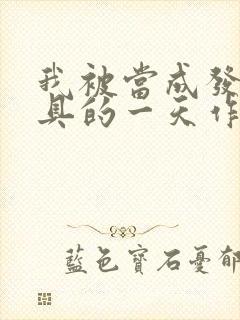 我被當成發
具的一天作
藍色寶石憂郁